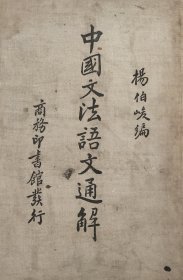 楊伯峻編
中國文法語文通解
商務印書館發行